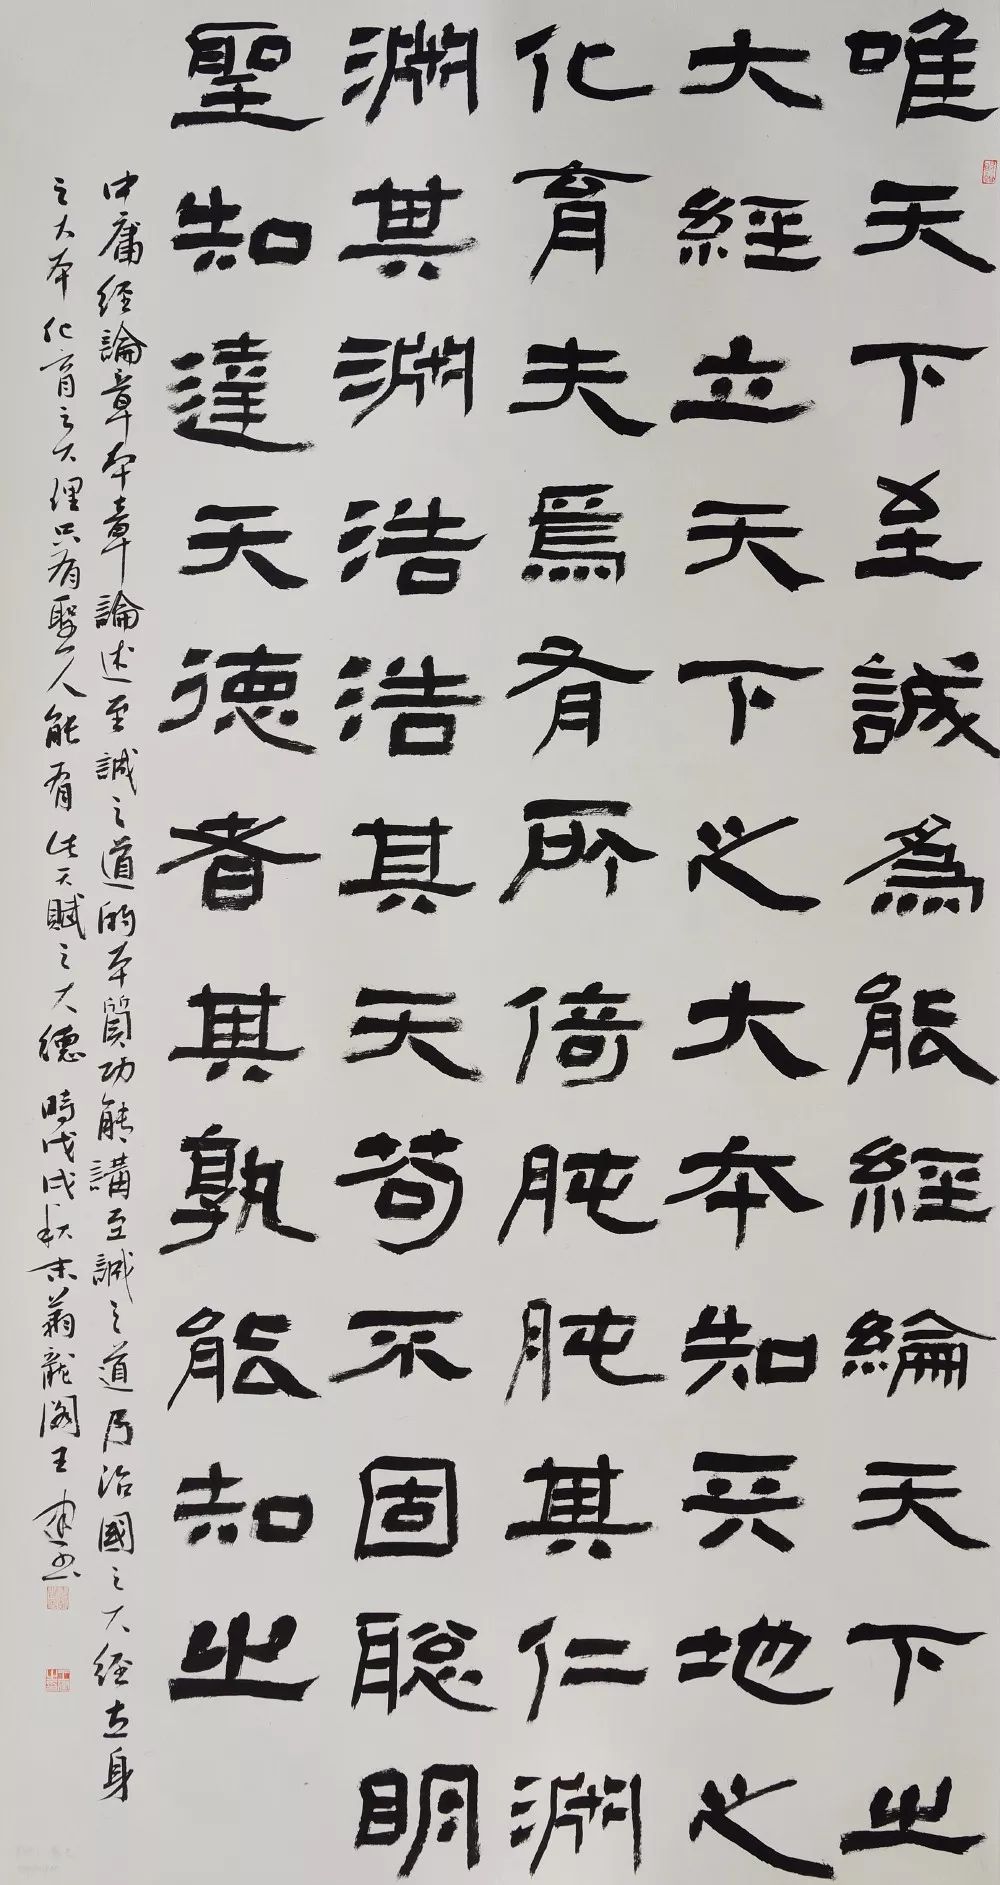 唯天下至誠為能經綸天下之
大經立天下之大本知天地之
化育夫焉有所倚肫肫其仁淵
淵其淵浩浩其天苟不固聰明
聖知達天德者其孰能知之
中庸經論章本章論述至誠之道的本質功能講至誠之道乃治國之大經立身
之大本化育之大理只有聖人能有此天賦之大德時戊戌秋末翥龍閣王建書